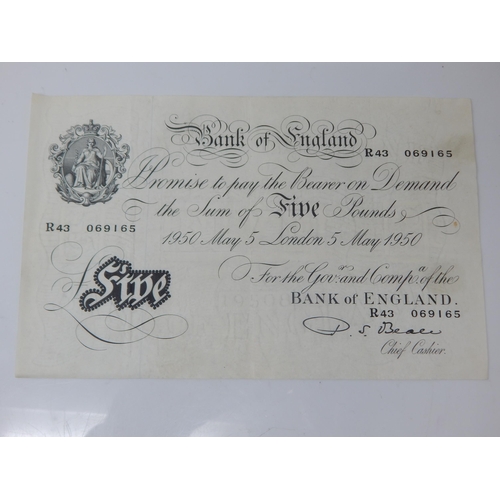 Bank of England
R43 069165
I Promise to pay the Bearer on Demand
the Sum of Five Pounds
R43 069165
1950 May 5 London 5 May 1950
For the Govr. and Compa. of the
BANK of ENGLAND.
£Five
R43 069165
P. S. Beale
Chief Cashier.